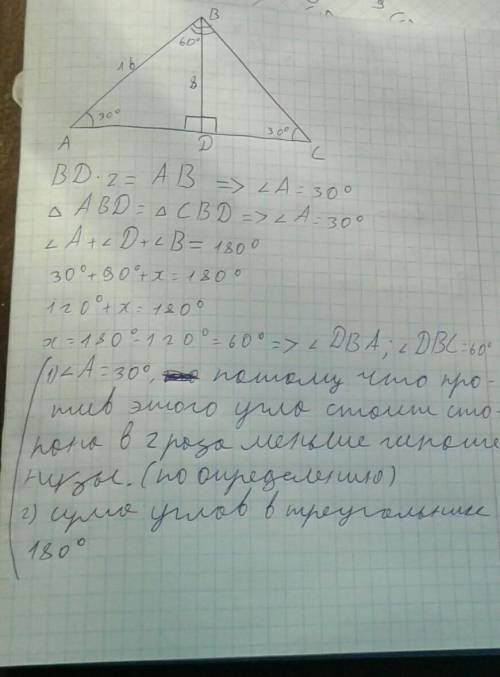 B
60°
16
8
30°
30°
A
D
C
BD·2 = AB => ∠A = 30°
△ ABD = △ CBD => ∠A = 30°
∠A + ∠D + ∠B = 180°
30° + 90° + x = 180°
120° + x = 180°
x = 180° - 120° = 60° => ∠DBA; ∠DBC = 60°
1) ∠A = 30°, потому что про-
тив этого угла стоит сто-
рона в 2 раза меньше гипоте
нузы. (по определению)
2) сума углов в треугольнике
180°